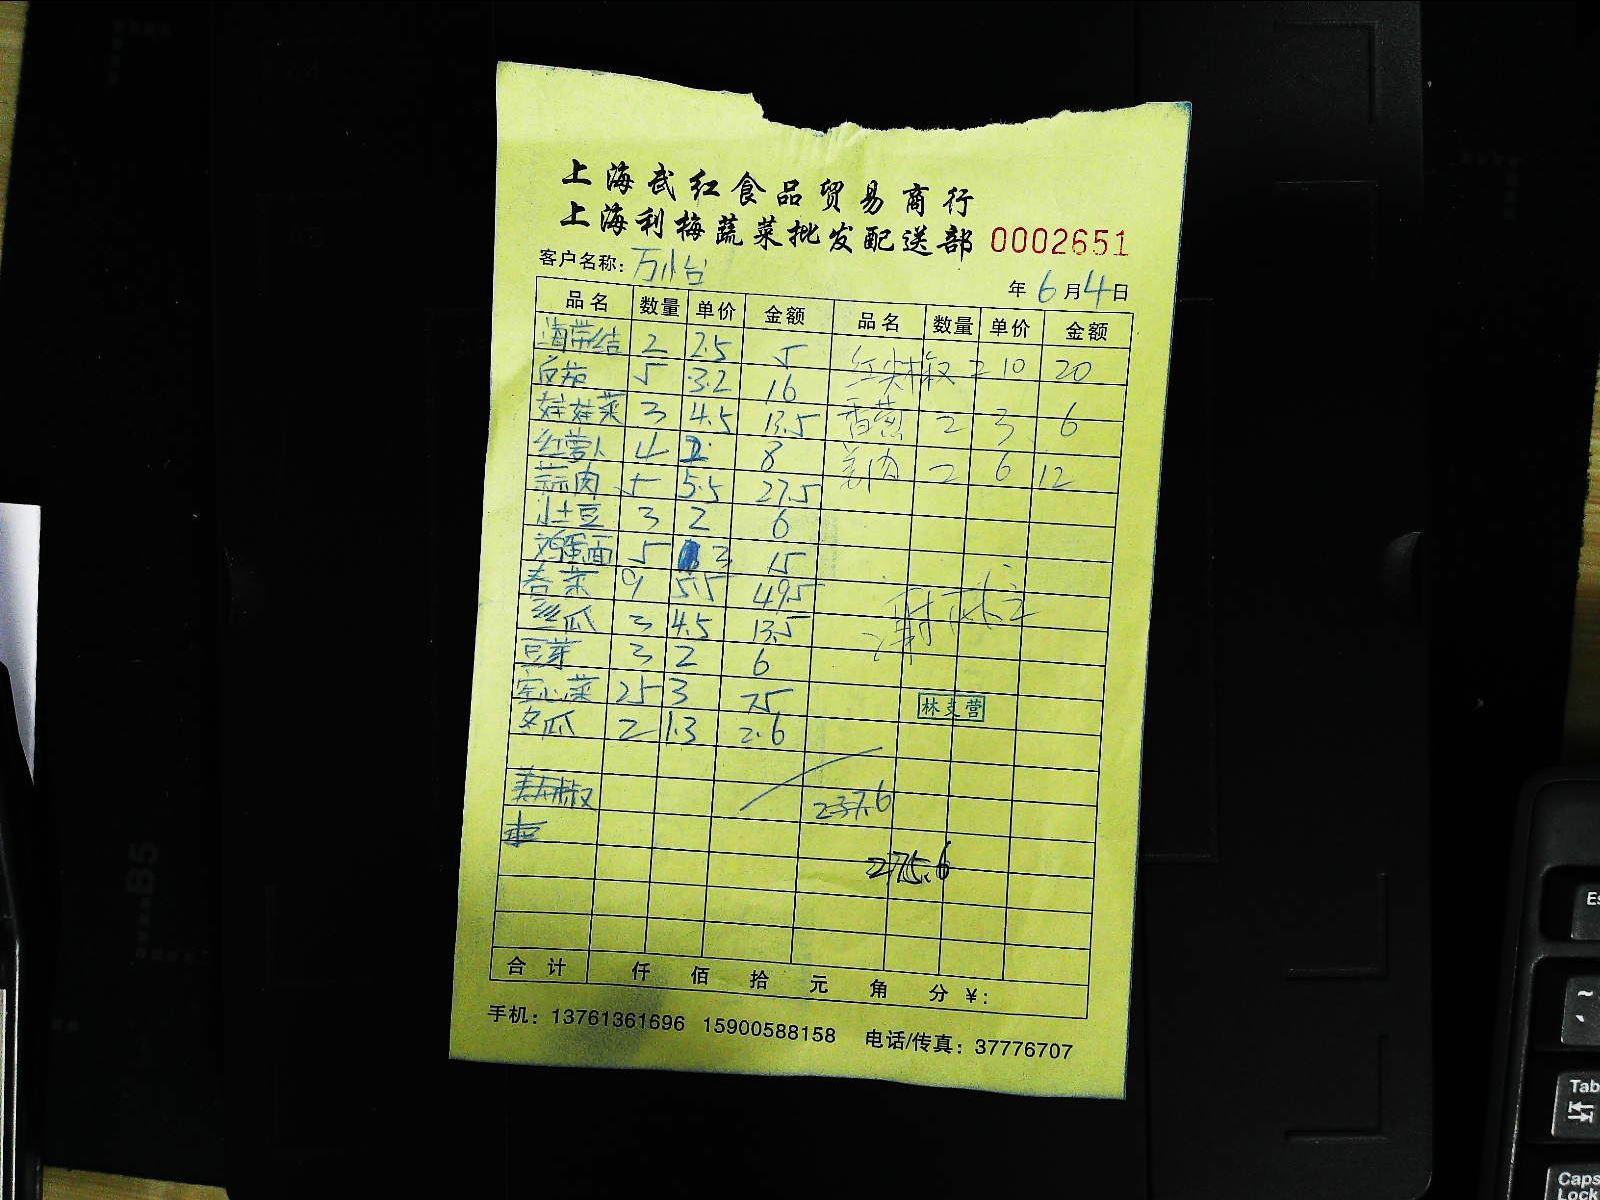 上海武红食品贸易商行
上海利梅蔬菜批发配送部 0002651
客户名称: 万小台
年 6 月 4 日
品名 数量 单价 金额 品名 数量 单价 金额
海带结 2 2.5 5 红尖椒 2 10 20
反茄 5 3.2 16
娃娃菜 3 4.5 13.5 香葱 2 3 6
红萝卜 4 2 8 姜肉 2 6 12
蒜肉 5 5.5 27.5
小土豆 3 2 6
鸡蛋面 5 3 15
春菜 9 5.5 49.5
丝瓜 3 4.5 13.5
豆芽 3 2 6
空心菜 25 3 75
林支营
冬瓜 2 1.3 2.6
237.6
275.6
合计 仟 佰 拾 元 角 分 ¥:
手机: 13761361696 15900588158 电话/传真: 37776707
B5
Es
~
Tab
Caps
Lock